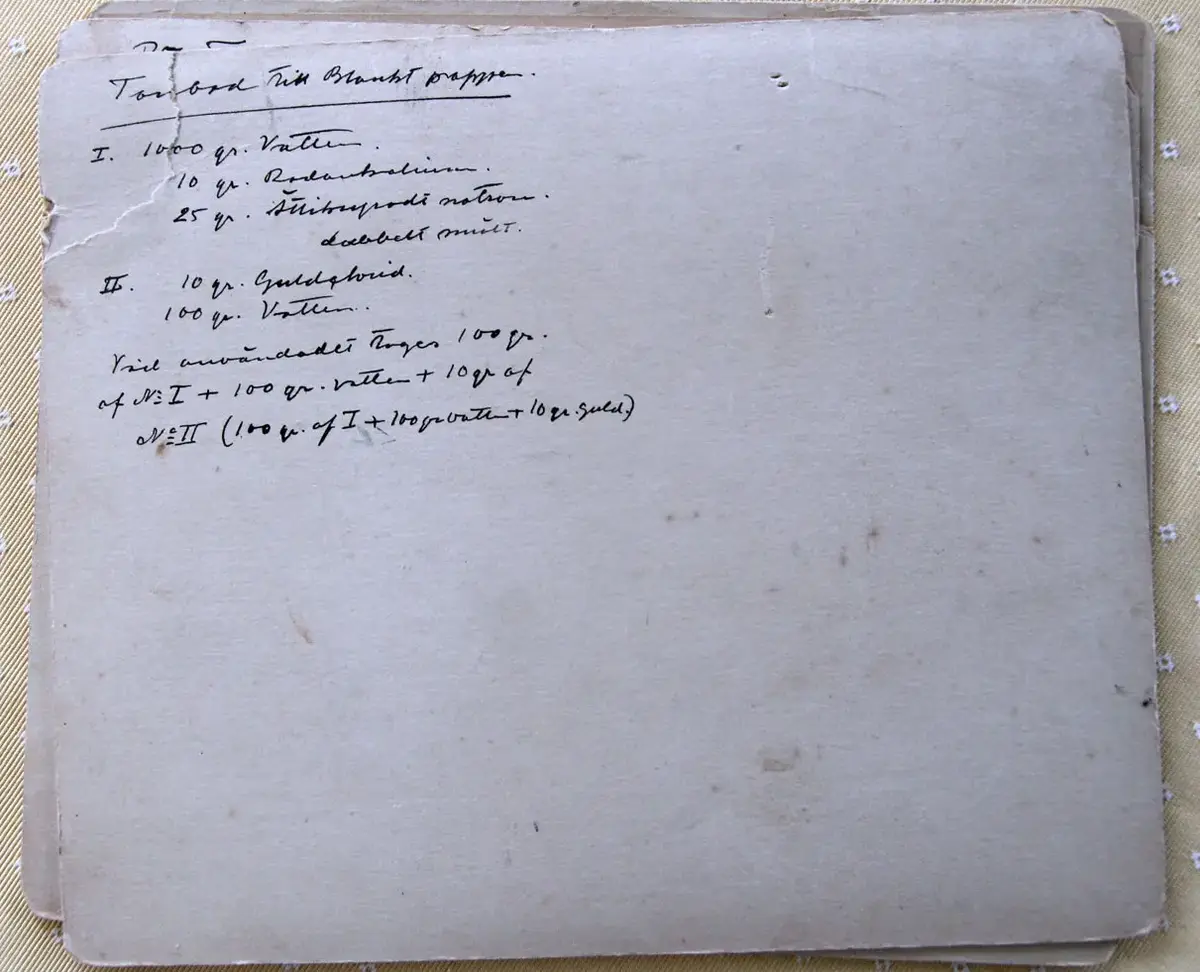 Tonbad till Blankt papper.
I. 1000 gr. Vatten.
10 gr. Rodankalium.
25 gr. Ättiksyradt natron.
dubbelt smält.
II. 10 gr. Guldchlorid.
100 gr. Vatten.
Vid användadet tages 100 gr.
af No I + 100 gr. vatten + 10 gr af
No II (100 gr. af I + 100 gr vatten + 10 gr. guld.)